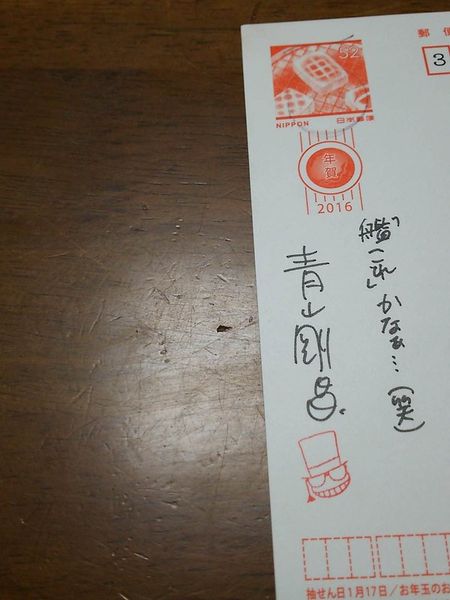 郵便
3
52
NIPPON 日本郵便
年賀
2016
艦「これ」かなぁ…(笑)
青山剛昌.
抽せん日1月17日/お年玉のお